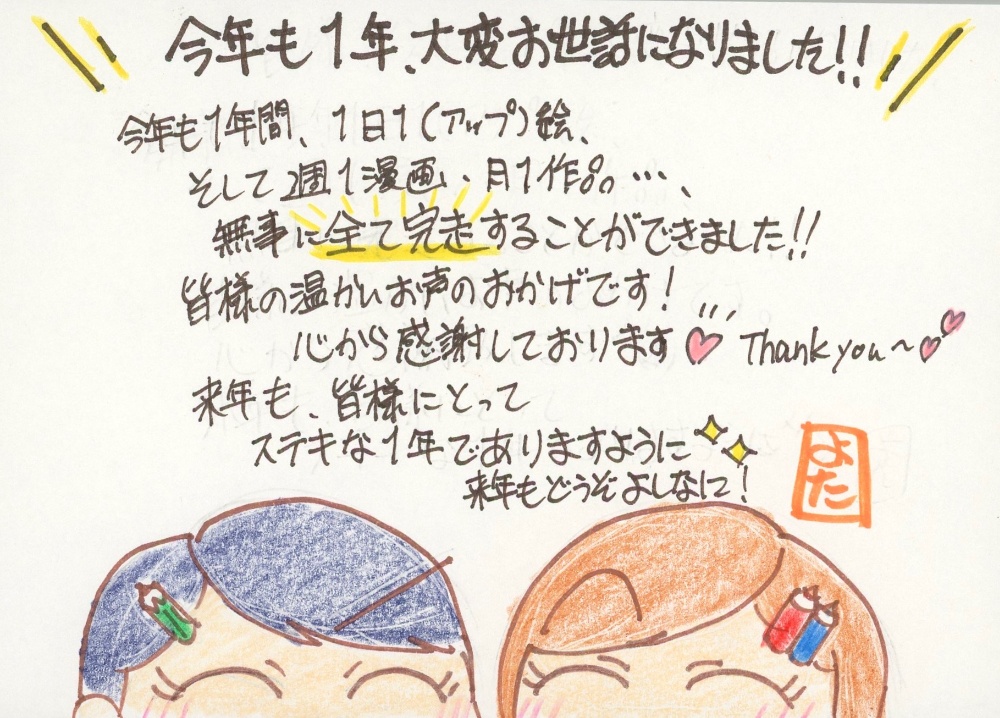 今年も1年、大変お世話になりました!!
今年も1年間、1日1(アップ)絵、
そして週1漫画、月1作品…、
無事に全て完走することができました!!
皆様の温かいお声のおかげです!
心から感謝しております Thank you~
来年も、皆様にとって
ステキな1年でありますように
来年もどうぞよしなに!
よた